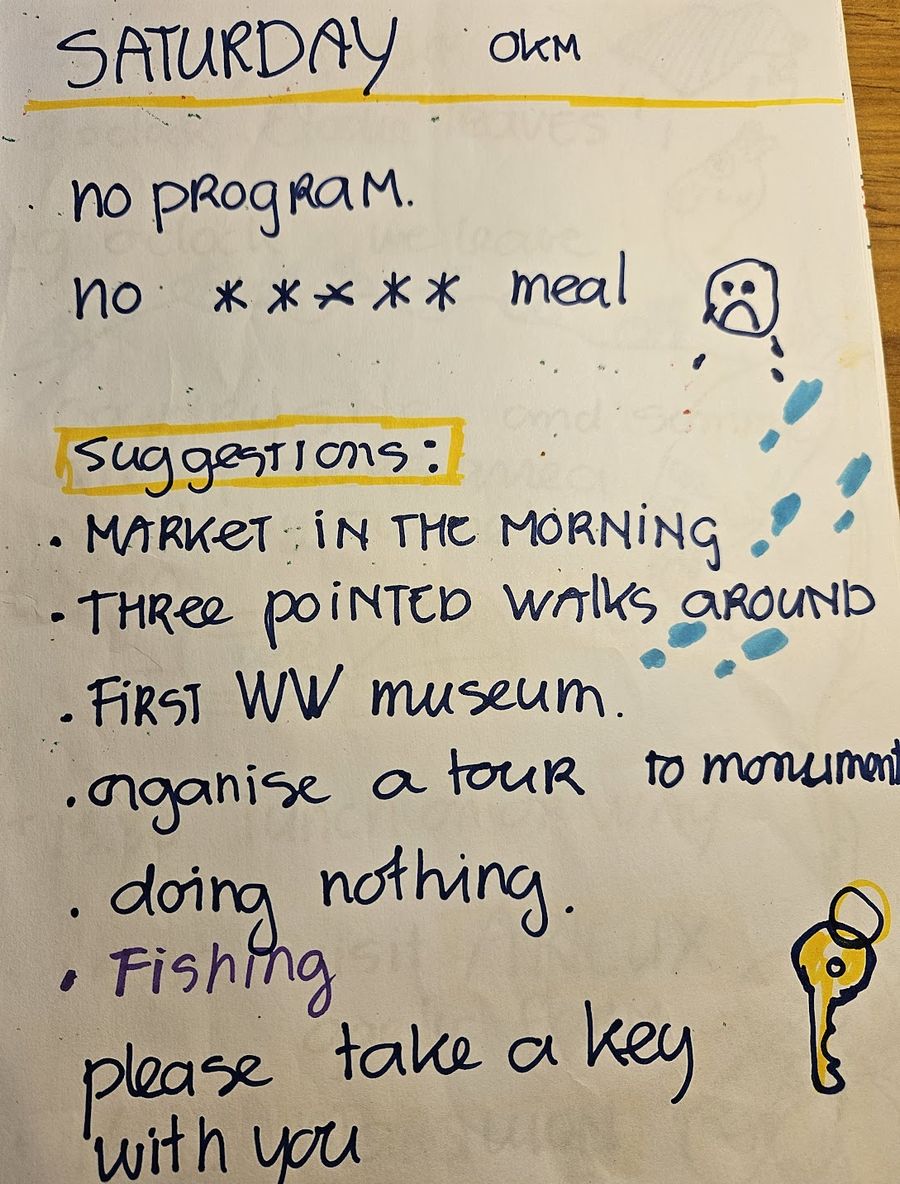 SATURDAY OKM
no PROGRAM.
no ***** meal
suggestions:
. MARKET IN THE MORNING
. THREE POINTED WALKS AROUND
. FIRST WW museum.
. organise a tour to monument
. doing nothing.
. Fishing
please take a key
with you